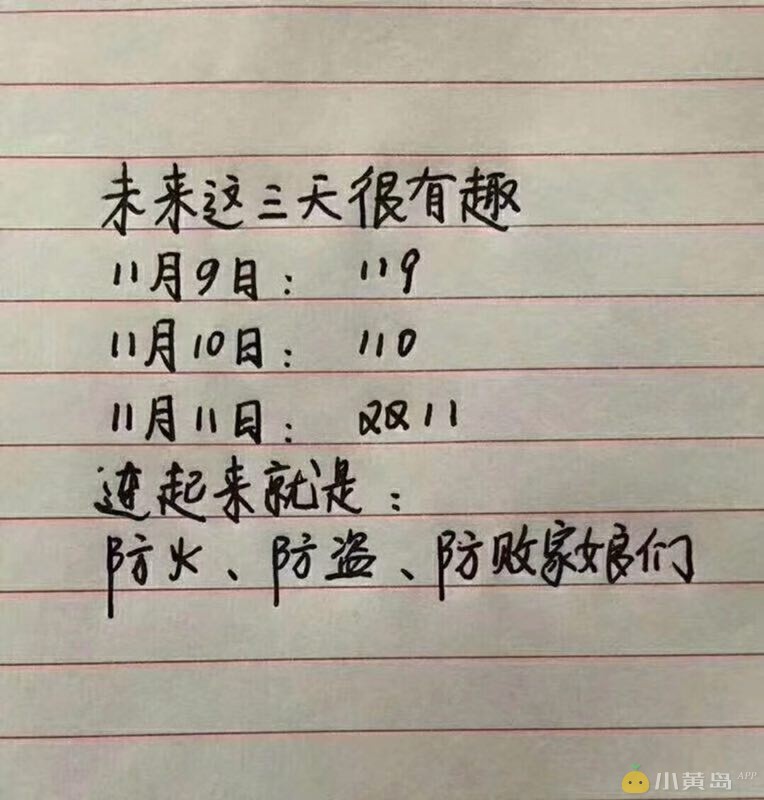 未来这三天很有趣
11月9日： 119
11月10日： 110
11月11日： 双11
连起来就是：
防火、防盗、防败家娘们
小黄岛APP